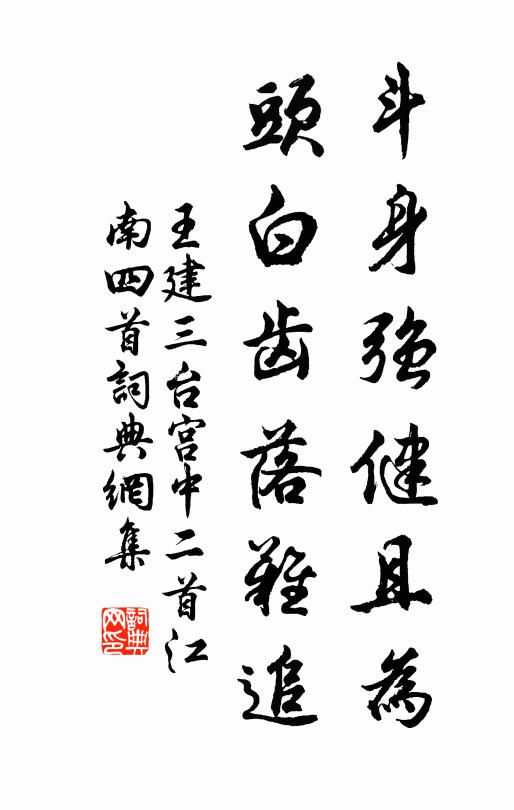 斗身強健且為
頭白齿落難追
王建三台宮中二首江
南四首詞典網集
詞典
网印